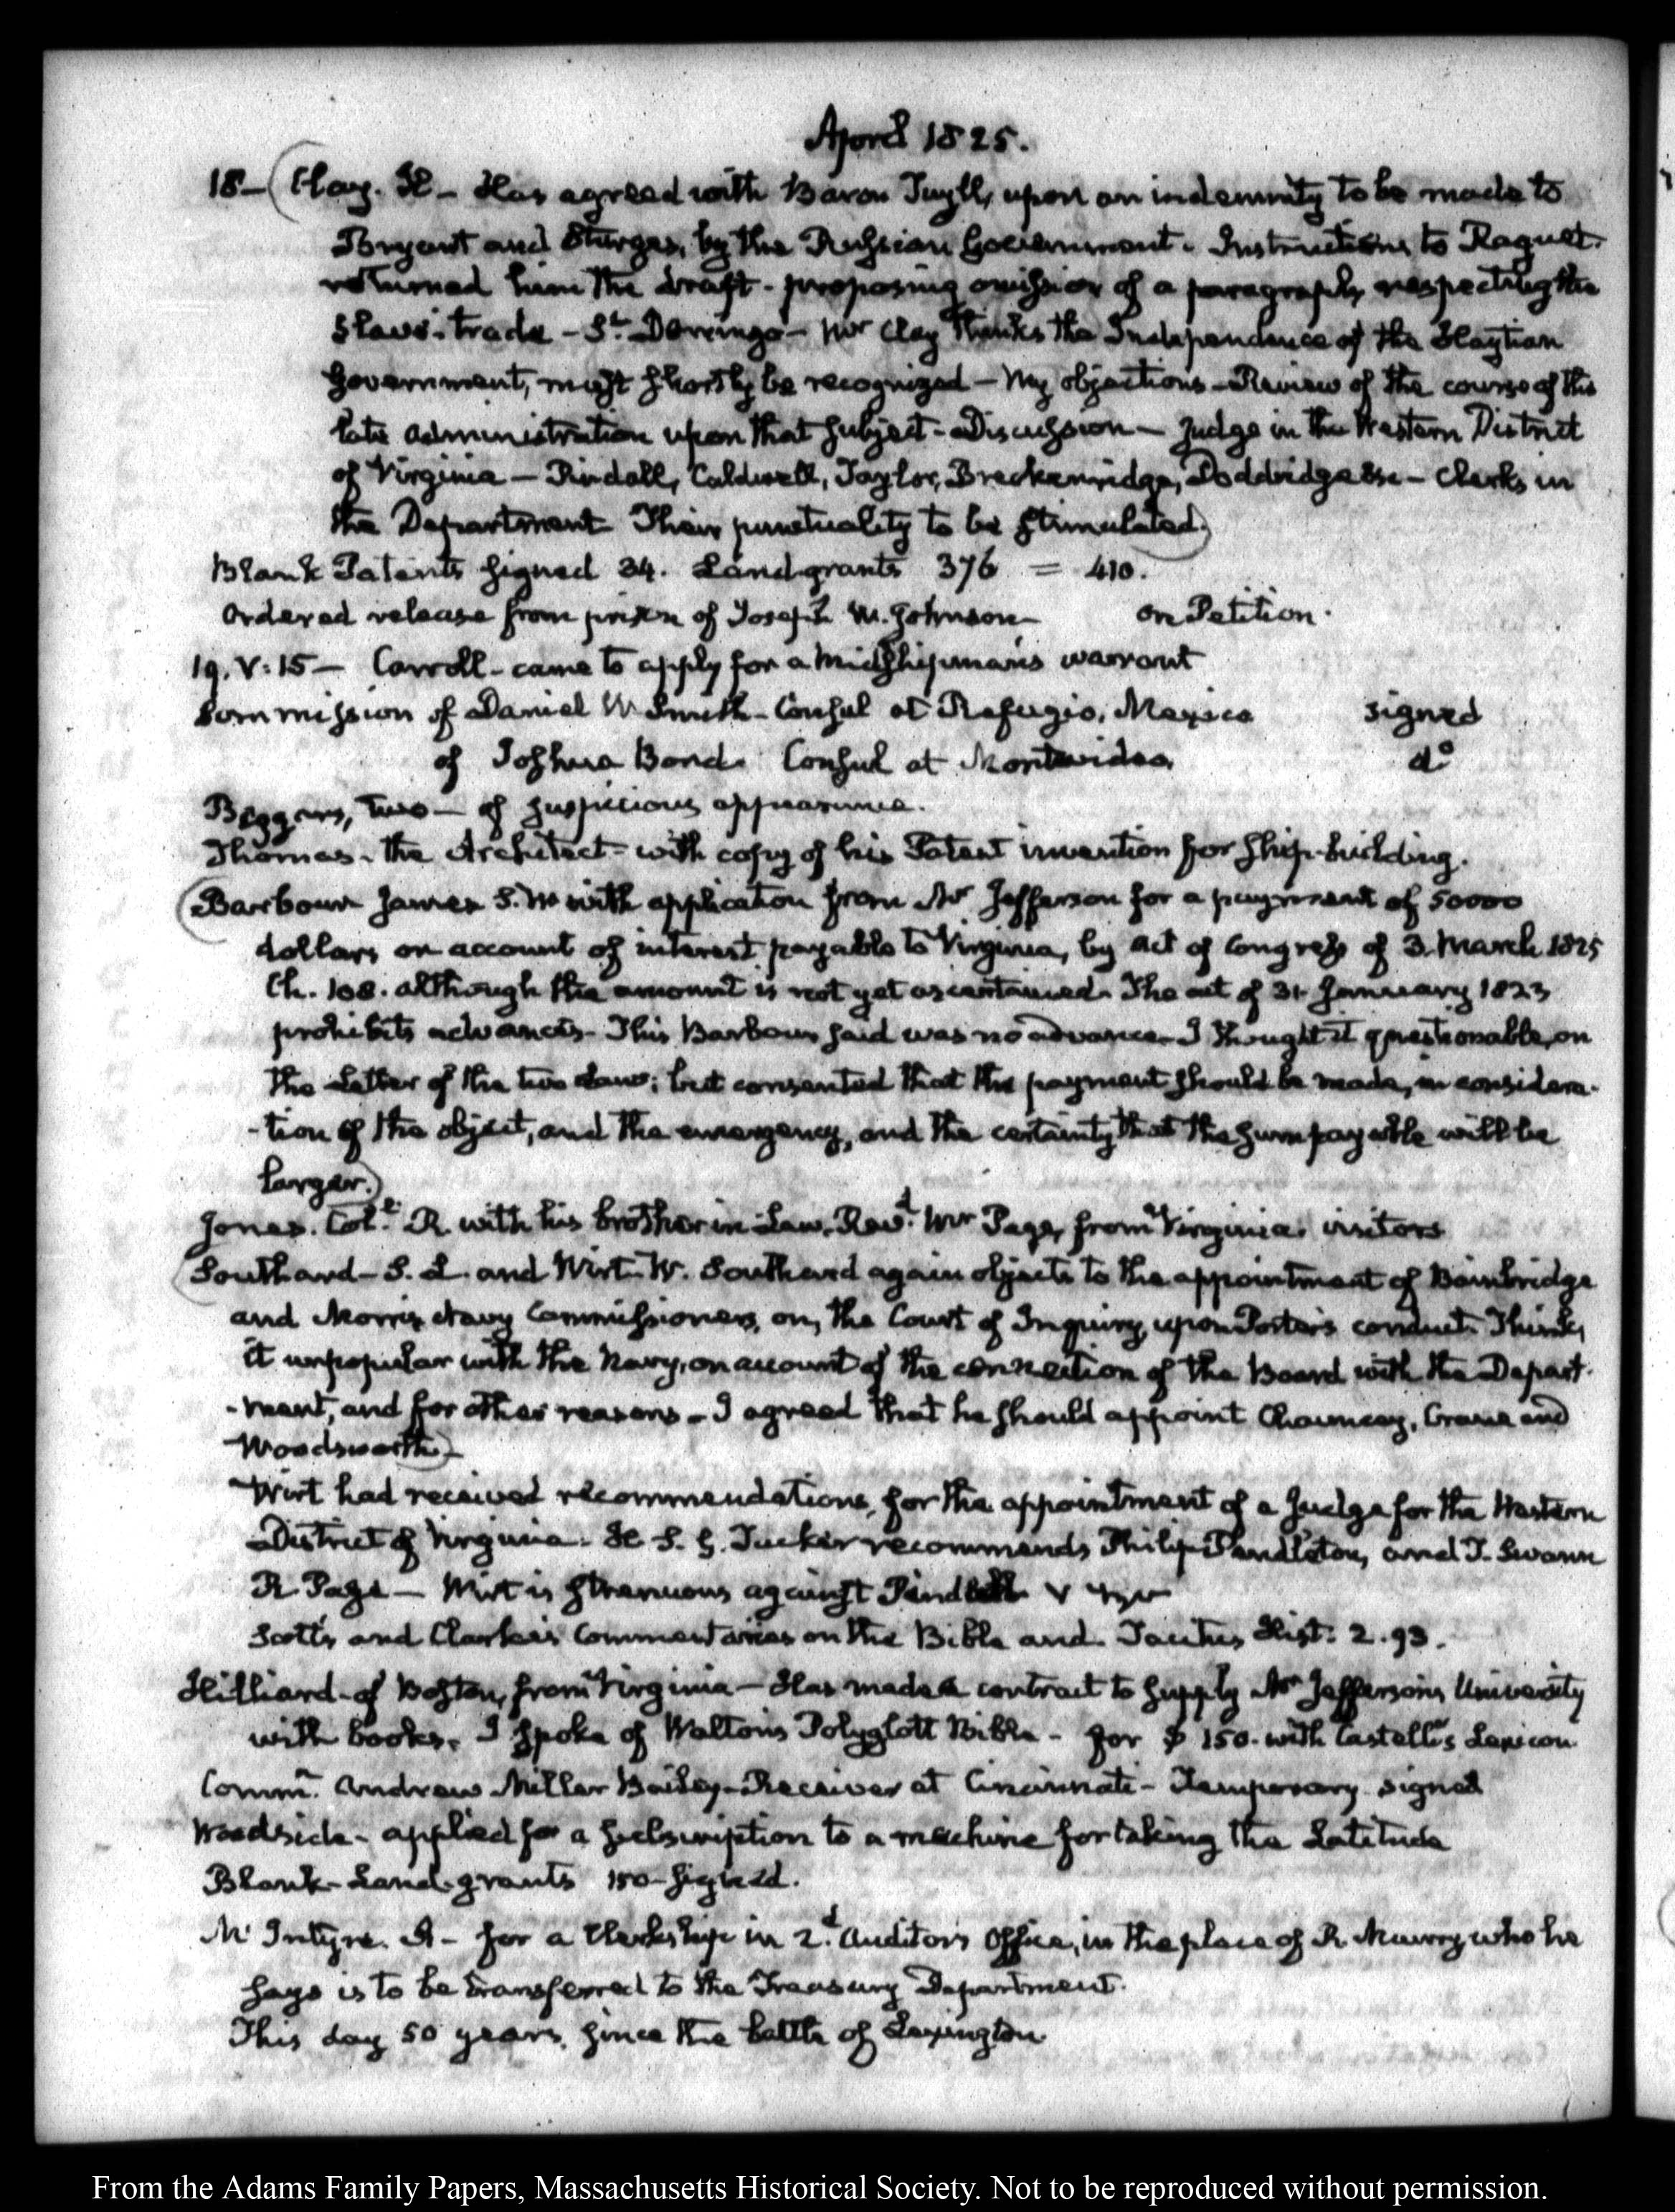 April 1825.
18 – (Clay. H – Has agreed with Baron Tuyll, upon an indemnity to be made to
Bryant and Sturges, by the Russian Government. Instructions to Raguet.
returned him the draft – proposing omission of a paragraph, respecting the
Slave-trade – St. Domingo – Mr Clay thinks the Independence of the Haytian
Government, must shortly be recognized – My objections – Review of the course of the
late administration upon that subject – Discussion – Judge in the Western District
of Virginia – Caldwell, Taylor, Breckenridge, Doddridge &c – Clerks in
the Department Their punctuality to be stimulated)
Blank Patents signed 34. Land grants 376 = 410.
Ordered release from prison of Joseph W. Johnson – on Petition.
19. V:15 – Carroll – came to apply for a Midshipman's warrant
Commission of Daniel W Smith – Consul at Refugio, Mexico signed
of Joshua Bond. Consul at Montevideo. do
Beggars, two – of suspicious appearance.
Thomas. the Architect – with copy of his Patent invention for ship-building.
(Barbour James S. with application from Mr Jefferson for a payment of 50000
dollars on account of interest payable to Virginia, by act of Congress of 3. March 1825
Ch. 108. although the amount is not yet ascertained. The act of 31 January 1823
prohibits advances – This Barbour said was no advance – I thought it questionable, on
the Letter of the two laws; but consented that the payment should be made, in considera-
-tion of the object, and the emergency, and the certainty that the sum payable will be
larger.)
Jones. Coll. R with his brother in Law. Revd. Mr Page, from Virginia. visitors
(Southard – S. L. and Wirt. W. Southard again objects to the appointment of Bainbridge
and Morris Navy Commissioners, on, the Court of Inquiry, upon Porter's conduct. Thinks
it unpopular with the Navy, on account of the connection of the Board with the Depart-
-ment, and for other reasons – I agreed that he should appoint Chauncey, Crane and
Woodsworth)
Wirt had received recommendations, for the appointment of a Judge for the Western
District of Virginia. H. S. G. Tucker recommends Philip Pendleton, and T. Swann
R Page – Wirt is strenuous against
Scott's and Clarke's Commentaries on the Bible and Tacitus Hist: 2.93.
Hilliard – of Boston, from Virginia – Has made a contract to supply Mr Jefferson's University
with books. I spoke of Walton's Polyglott Bible – for $150. with Castell's Lexicon.
Commn. Andrew Miller Bailey – Receiver at Cincinnati – Temporary signed
Woodside – applied for a subscription to a machine for taking the Latitude
Blank – Land-grants 150 – signed.
Mc Intyre. A – for a Clerkship in 2d. Auditor's Office, in the place of R. who he
says is to be transferred to the Treasury Department.
This day 50 years, since the battle of Lexington
From the Adams Family Papers, Massachusetts Historical Society. Not to be reproduced without permission.